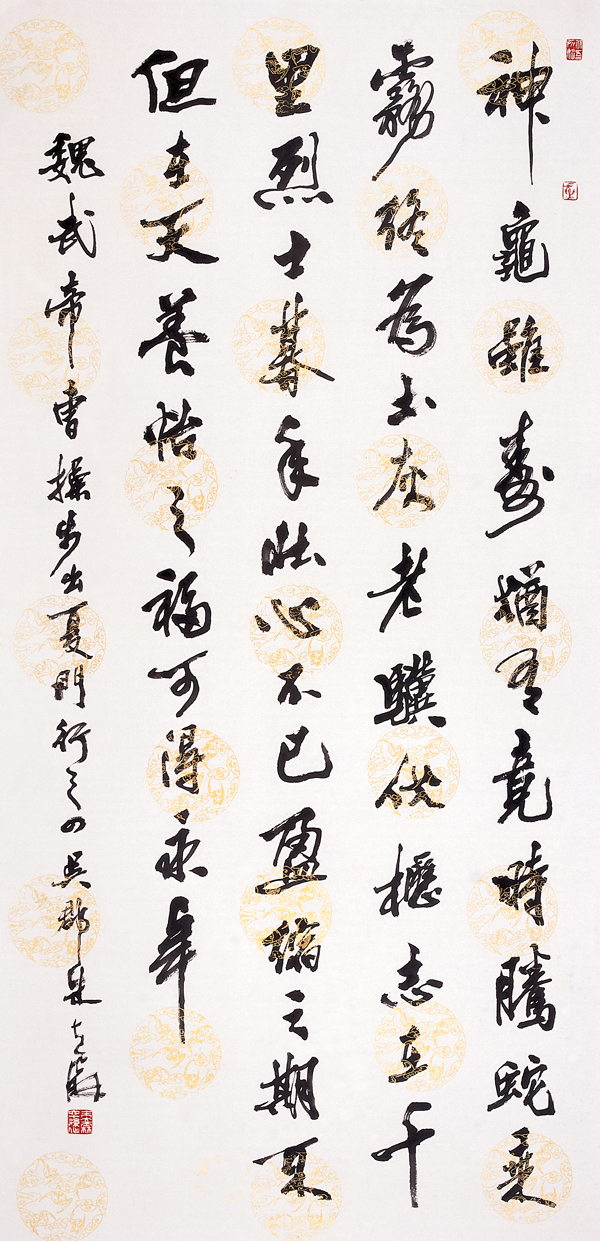 神龜雖壽猶有竟時騰蛇乘
霧終為土灰老驥伏櫪志在千
里烈士暮年壯心不已盈縮之期不
但在天養怡之福可得永年
魏武帝曹操步出夏門行之四吳郡朱